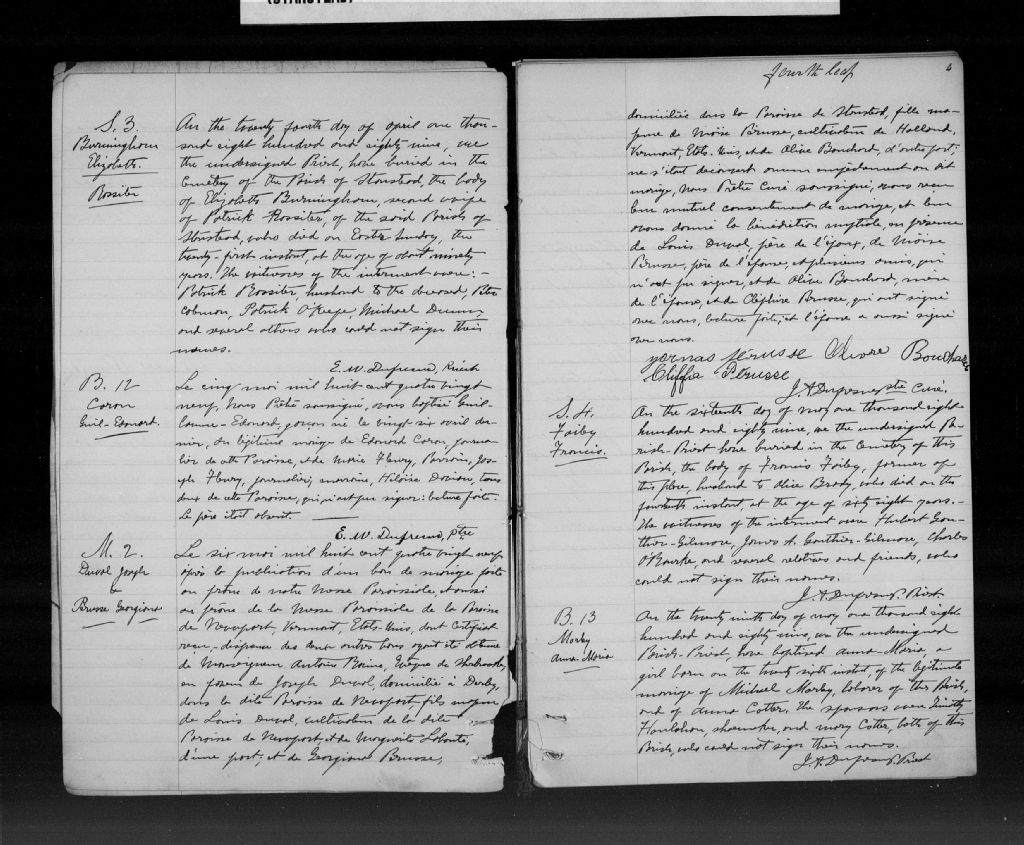 (STANSTEAD)
S. 3.
Burmingham
Elizabeth.
Rossiter
On the twenty fourth day of April one thou-
sand eight hundred and eighty nine, we
the undersigned Priest, have buried in the
Cemetery of the Parish of Stanstead, the body
of Elizabeth Burmingham, second wife
of Patrick Rossiter, of the said Parish of
Stanstead, who died on Easter Sunday, the
twenty-first instant, at the age of about ninety
years. The witnesses of the interment were:-
Patrick Rossiter, husband to the deceased, Peter
Patrick O'Keefe, Michael
and several others who could not sign their
names.
E. W. Dufresne, Priest
B. 12
Caron
Guil-Edouard.
Le cinq mai mil huit cent quatre vingt
neuf, Nous Prêtre soussigné, avons baptisé Guil-
laume-Edouard, garçon né le vingt six avril der-
nier, du légitime mariage de Edouard Caron, journa-
lier de cette Paroisse, et de Marie Fleury, Parrain, Jos-
eph Fleury, journalier, marraine, Héloïse tous
deux de cette Paroisse, qui, n'ont pu signer: lecture faite.
Le père était absent.
E. W. Dufresne, Ptre
M. 2.
Duval Joseph
&
Perusse Georgiana
Le six mai mil huit cent quatre vingt neuf,
après la publication d'un ban de mariage faite
au prône de notre Messe Paroissiale, et aussi
au prône de la Messe Paroissiale de la Paroisse
de Newport, Vermont, Etats-Unis, dont certificat
reçu, dispense des deux autres bans ayant été obtenue
de Monseigneur Antoine Racine, Evêque de Sherbrooke,
en faveur de Joseph Duval, domicilié à Derby,
dans la dite Paroisse de Newport, fils majeur
de Louis Duval, cultivateur de la dite
Paroisse de Newport et de Marguerite
d'une part; et de Georgiana Perusse,
fourth leaf
4
domiciliée dans la Paroisse de Stanstead, fille ma-
jeure de Moïse Perusse, cultivateur de Holland,
Vermont, Etats-Unis, et de Olive Bouchard, d'autre part:
ne s'étant découvert aucun empêchement au dit
mariage, Nous Prêtre Curé soussigné, avons reçu
leur mutuel consentement de mariage, et leur
avons donné la bénédiction nuptiale, en présence
de Louis Duval, père de l'époux, de Moïse
Perusse, père de l'épouse, et plusieurs amis, qui
n'ont pu signer, et de Olive Bouchard, mère
de l'épouse, et de Perusse, qui ont signé
avec nous, lecture faite, et l'épouse a aussi signé
avec nous.
perusse Olivere Bouchard
Perusse
J. A. Dufresne ptre Curé.
S. 4.
Foiley
Francis.
On the sixteenth day of may one thousand eight-
hundred and eighty nine, we the undersigned Pa-
rish-Priest have buried in the Cemetery of this
Parish, the body of Francis Foiley, farmer of
this place, husband to Alice Brady, who died on the
fourteenth instant, at the age of sixty eight years.-
The witnesses of the interment were Hubert Gau-
thier-Gilmore, James A. Gauthier-Gilmore, Charles
O'Rourke, and several relatives and friends, who
could not sign their names.
J. A. Dufresne P. Priest.
B. 13
Marley
Anna-Maria
On the twenty ninth day of may one thousand eight
hundred and eighty nine, we the undersigned
Parish-Priest, have baptised Anna-Maria, a
girl born on the twenty sixth instant, of the legitimate
marriage of Michael Marley, laborer of this Parish,
and of Anna Cotter. The sponsors were Timothy
Houlahan, shoemaker, and Mary Cotter, both of this
Parish, who could not sign their names.
J. A. Dufresne P. Priest